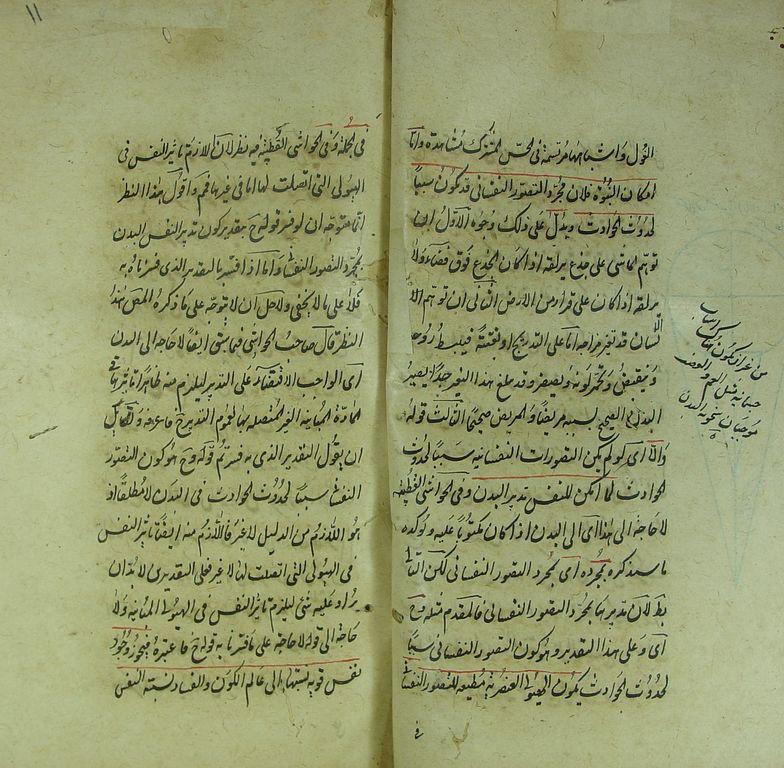 النول واشباهها مرتسمة فى الحس المشترك مشاهدة واما
امكان النبوة فلان مجرد التصور النفسانى قد يكون سببا
لحدوث الحوادث ويدل على ذلك وجوه الاول ان
توهم الماشى على جذع يزلقه اذا كان الجذع فوق فضاء ولا
يزلقه اذا كان على قرار من الارض الثانى ان توهم الا
نسان قد يغير مزاجه اما على التدريج او بغتة فينبسط روحه
وينقبض ويحمر لونه ويصفر وقد يبلغ هذا التغير حدا يصير
البدن الصحيح بسببه مريضا والمريض صحيحا الثالث قوله
والا اى لو لم يكن التصورات النفسانية سببا لحدوث
الحوادث لما امكن للنفس تدبير البدن وفى الحواشى القطبية
لا حاجة الى هذا اى الى البدن اذا كان مكتوبا عليه ويؤكده
ما سيذكره بمجرده اى بمجرد التصور النفسانى لكن التالى
بط لان تدبيرها بمجرد التصور النفسانى فالمقدم مثله وح
اى وعلى هذا التقدير وهو كون التصور النفسانى سببا
لحدوث الحوادث يكون الهيولى العنصرية مطيعة للتصور النفسانى
فى
من غير ان يكون هناك سبب
جسمانى مثل الغم والغضب
يوجبان سخونة البدن
١١
فى الجملة وفى الحواشى القطبية فيه نظر لان اللازم تاثير النفس فى
الهيولى التى اتصلت بها اما فى غيرها فمم واقول هذا النظر
انما يتوجه ان لو فسر قوله ح بتقدير كون تدبير النفس البدن
بمجرد التصور النفسانى واما اذا فسر بالتقدير الذى فسرناه به
فلا على ما لا يخفى ولاجل ان لا يتوجه على ما ذكره المص هذا
النظر قال صاحب الحواشى فيما سبق ايضا لا حاجة الى البدن
اى الواجب الاقتصار على التدبير ليلزم منه ظاهرا تاثيرها فى
المادة المباينة الغير المتصلة بها لعموم التدبير ح فاعرفه ولقائل
ان يقول التقدير الذى به فسرتم قوله وح هو كون التصور
النفسانى سببا لحدوث الحوادث فى البدن لا مطلقا اذ
هو اللازم من الدليل لا غير فاللازم منه ايضا تاثير النفس
فى الهيولى التى اتصلت بها لا غير فعلى التقديرين لا بد ان
يزاد عليه شئ ليلزم تاثير النفس فى الهيولى المباينة ولا
حاجة الى قوله لا حاجة على ما فسرنا به قوله ح فاعتبره فيجوز وجود
نفس قوية نسبتها الى عالم الكون والفساد نسبة النفس